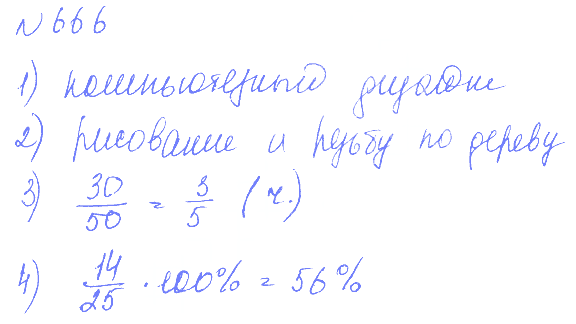 № 666
1) компьютерный дизайн
2) рисование и резьбу по дереву
3) 30/50 = 3/5 (ч.)
4) 14/25 · 100% = 56%